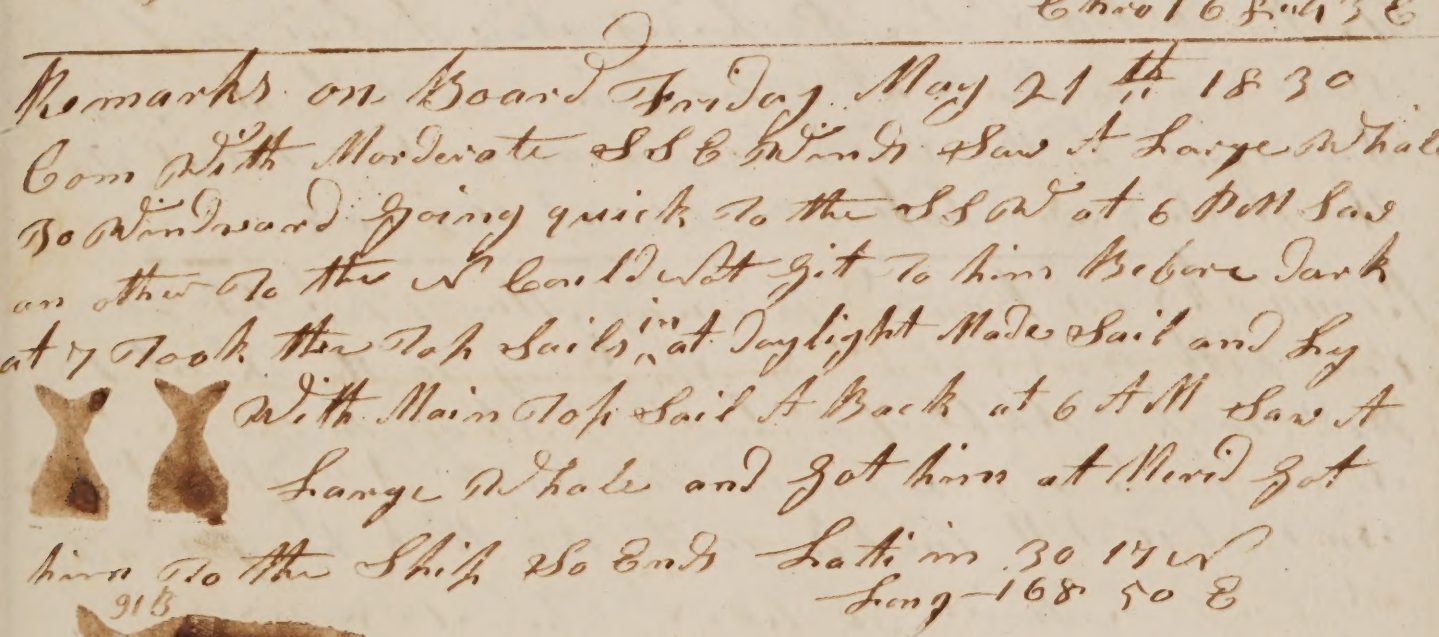 Remarks on Board Friday May 21th 1830
Com With Morderate S S E Winds Saw A Large Whale
To Windward going quick To the S S W at 6 PM Saw
an other To the N Could Not Git To him Before dark
at 7 Took the Top Sails in at daylight Made Sail and Ly
With Main Top Sail A Back at 6 AM Saw A
Large Whale and Got him at Merid Got
him To the Ship So Ends Lati in 30 17 N
Long 168 50 E
91 B